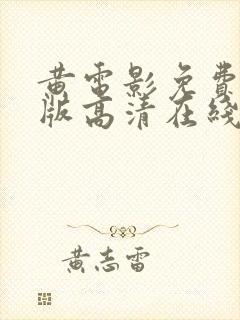 黄雷影免费
版高清在线
黄志雷